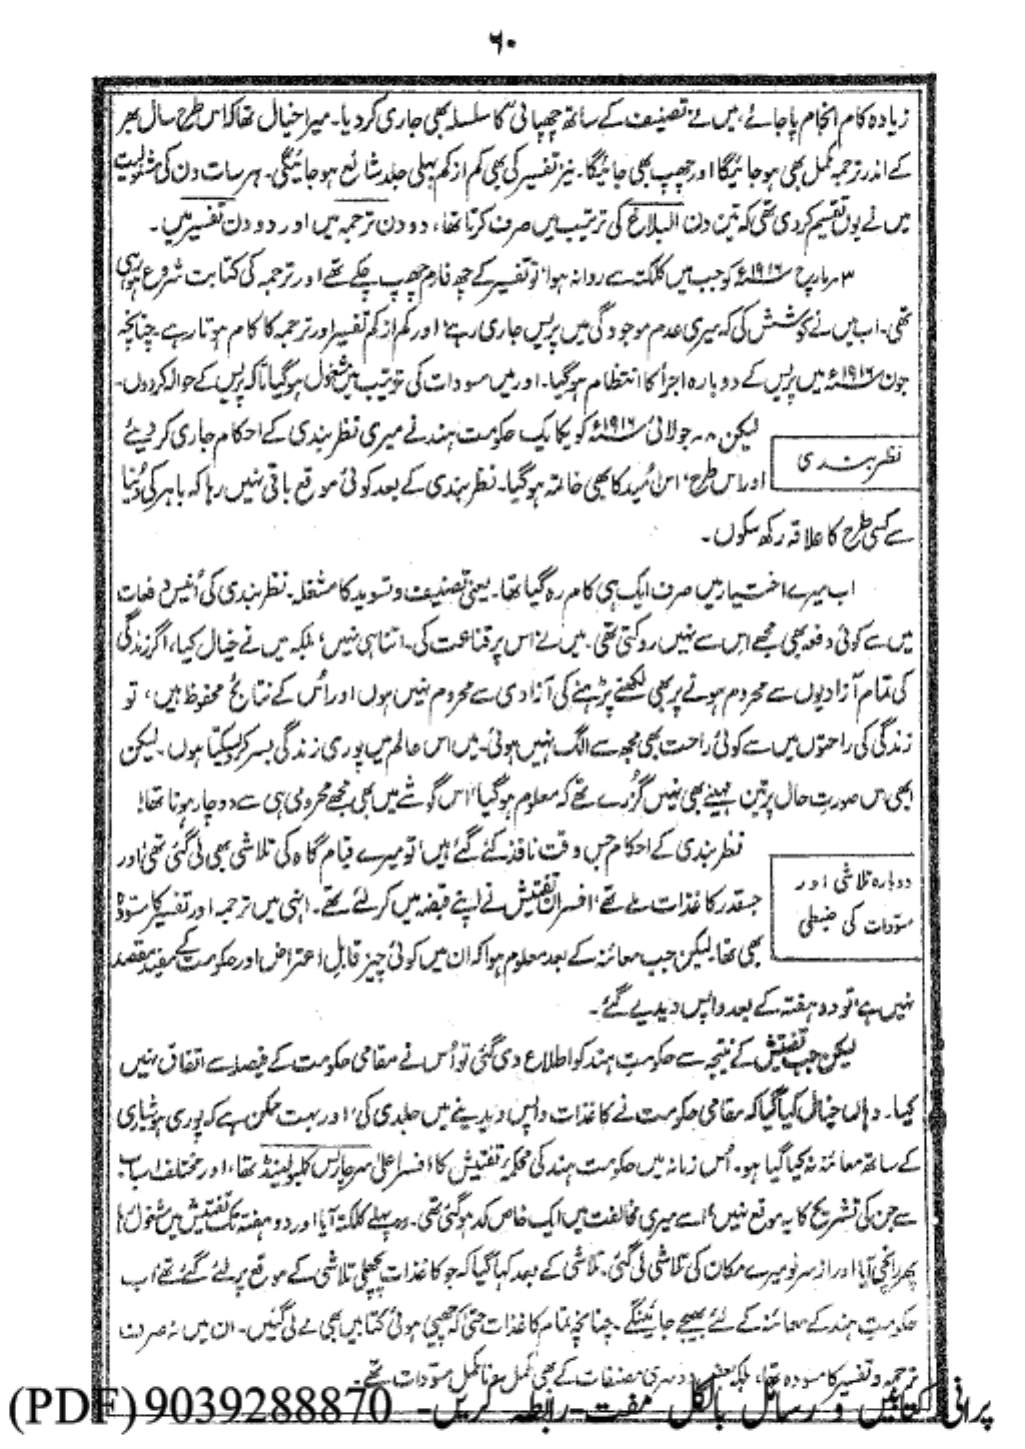 ۶۰
زیادہ کام انجام پا جائے، میں نے تصنیف کے ساتھ چھپائی کا سلسلہ بھی جاری کر دیا۔ میرا خیال تھا کہ اس طرح سال بھر
کے اندر ترجمہ مکمل بھی ہو جائیگا اور چھپ بھی جائیگا۔ نیز تفسیر کی بھی کم از کم پہلی جلد شائع ہو جائیگی۔ ہر سات دن کی مشغولیت
میں نے یوں تقسیم کر دی تھی کہ تین دن البلاغ کی ترتیب میں صرف کرتا تھا، دو دن ترجمہ میں اور دو دن تفسیر میں۔
۳۔ مارچ ۱۹۱۶ء کو جب میں کلکتہ سے روانہ ہوا، تو تفسیر کے چھ فارم چھپ چکے تھے اور ترجمہ کی کتابت شروع ہو رہی
تھی۔ اب میں نے کوشش کی کہ میری عدم موجودگی میں پریس جاری رہے، اور کم از کم تفسیر اور ترجمہ کا کام ہوتا رہے۔ چنانچہ
جون ۱۹۱۶ء میں پریس کے دوبارہ اجرا کا انتظام ہو گیا۔ اور میں مسودات کی ترتیب میں مشغول ہو گیا تاکہ پریس کے حوالہ کر دوں۔
نظر بندی
لیکن ۸۔ جولائی ۱۹۱۶ء کو یکایک حکومت ہند نے میری نظر بندی کے احکام جاری کر دیئے
اور اس طرح، اس اُمید کا بھی خاتمہ ہو گیا۔ نظر بندی کے بعد کوئی موقع باقی نہیں رہا کہ باہر کی دُنیا
سے کسی طرح کا علاقہ رکھ سکوں۔
اب میرے اختیار میں صرف ایک ہی کام رہ گیا تھا۔ یعنی تصنیف و تسوید کا مشغلہ۔ نظر بندی کی اُنیس دفعات
میں سے کوئی دفعہ بھی مجھے اس سے نہیں روکتی تھی۔ میں نے اس پر قناعت کی۔ اتنا ہی نہیں، بلکہ میں نے خیال کیا، اگر زندگی
کی تمام آزادیوں سے محروم ہونے پر بھی لکھنے پڑھنے کی آزادی سے محروم نہیں ہوں اور اُس کے نتائج محفوظ ہیں، تو
زندگی کی راحتوں میں سے کوئی راحت بھی مجھ سے الگ نہیں ہوئی۔ میں اس عالم میں پوری زندگی بسر کر سکتا ہوں۔ لیکن
ابھی اس صورتِ حال پر تین مہینے بھی نہیں گزرے تھے کہ معلوم ہو گیا، اس گوشے میں بھی مجھے محرومی ہی سے دوچار ہونا تھا!
دوبارہ تلاشی اور
مسودات کی ضبطی
نظر بندی کے احکام جس وقت نافذ کئے گئے ہیں، تو میرے قیام گاہ کی تلاشی بھی لی گئی تھی، اور
جسقدر کاغذات ملے تھے، افسرانِ تفتیش نے اپنے قبضہ میں کر لئے تھے۔ انہی میں ترجمہ اور تفسیر کا مسودہ
بھی تھا۔ لیکن جب معائنہ کے بعد معلوم ہوا کہ ان میں کوئی چیز قابلِ اعتراض اور حکومت کے مفید مقصد
نہیں ہے، تو دو ہفتہ کے بعد واپس دیدیے گئے۔
لیکن جب تفتیش کے نتیجہ سے حکومتِ ہند کو اطلاع دی گئی تو اُس نے مقامی حکومت کے فیصلہ سے اتفاق نہیں
کیا۔ وہاں خیال کیا گیا کہ مقامی حکومت نے کاغذات واپس دیدینے میں جلدی کی، اور بہت ممکن ہے کہ پوری ہشیاری
کے ساتھ معائنہ نہ کیا گیا ہو۔ اُس زمانہ میں حکومت ہند کی محکمہ تفتیش کا افسر اعلیٰ سر چارلس کلیولینڈ تھا، اور مختلف اسباب
سے جن کی تشریح کا یہ موقع نہیں، اسے میری مخالفت میں ایک خاص کد ہو گئی تھی۔ وہ پہلے کلکتہ آیا اور دو ہفتہ تک تفتیش میں مشغول رہا
پھر رانچی آیا اور از سرِ نو میرے مکان کی تلاشی لی گئی۔ تلاشی کے بعد کہا گیا کہ جو کاغذات پچھلی تلاشی کے موقع پر لئے گئے تھے، اب
حکومتِ ہند کے معائنہ کے لئے بھیجے جائینگے۔ چنانچہ تمام کاغذات حتیٰ کہ چھپی ہوئی کتابیں بھی لے لی گئیں۔ ان میں نہ صرف
ترجمہ و تفسیر کا مسودہ تھا، بلکہ بعض دوسری مصنفات کے بھی مکمل و نامکمل مسودات تھے۔
پرانی کتابیں و رسائل بالکل مفت۔ رابطہ کریں۔ 9039288870 (PDF)